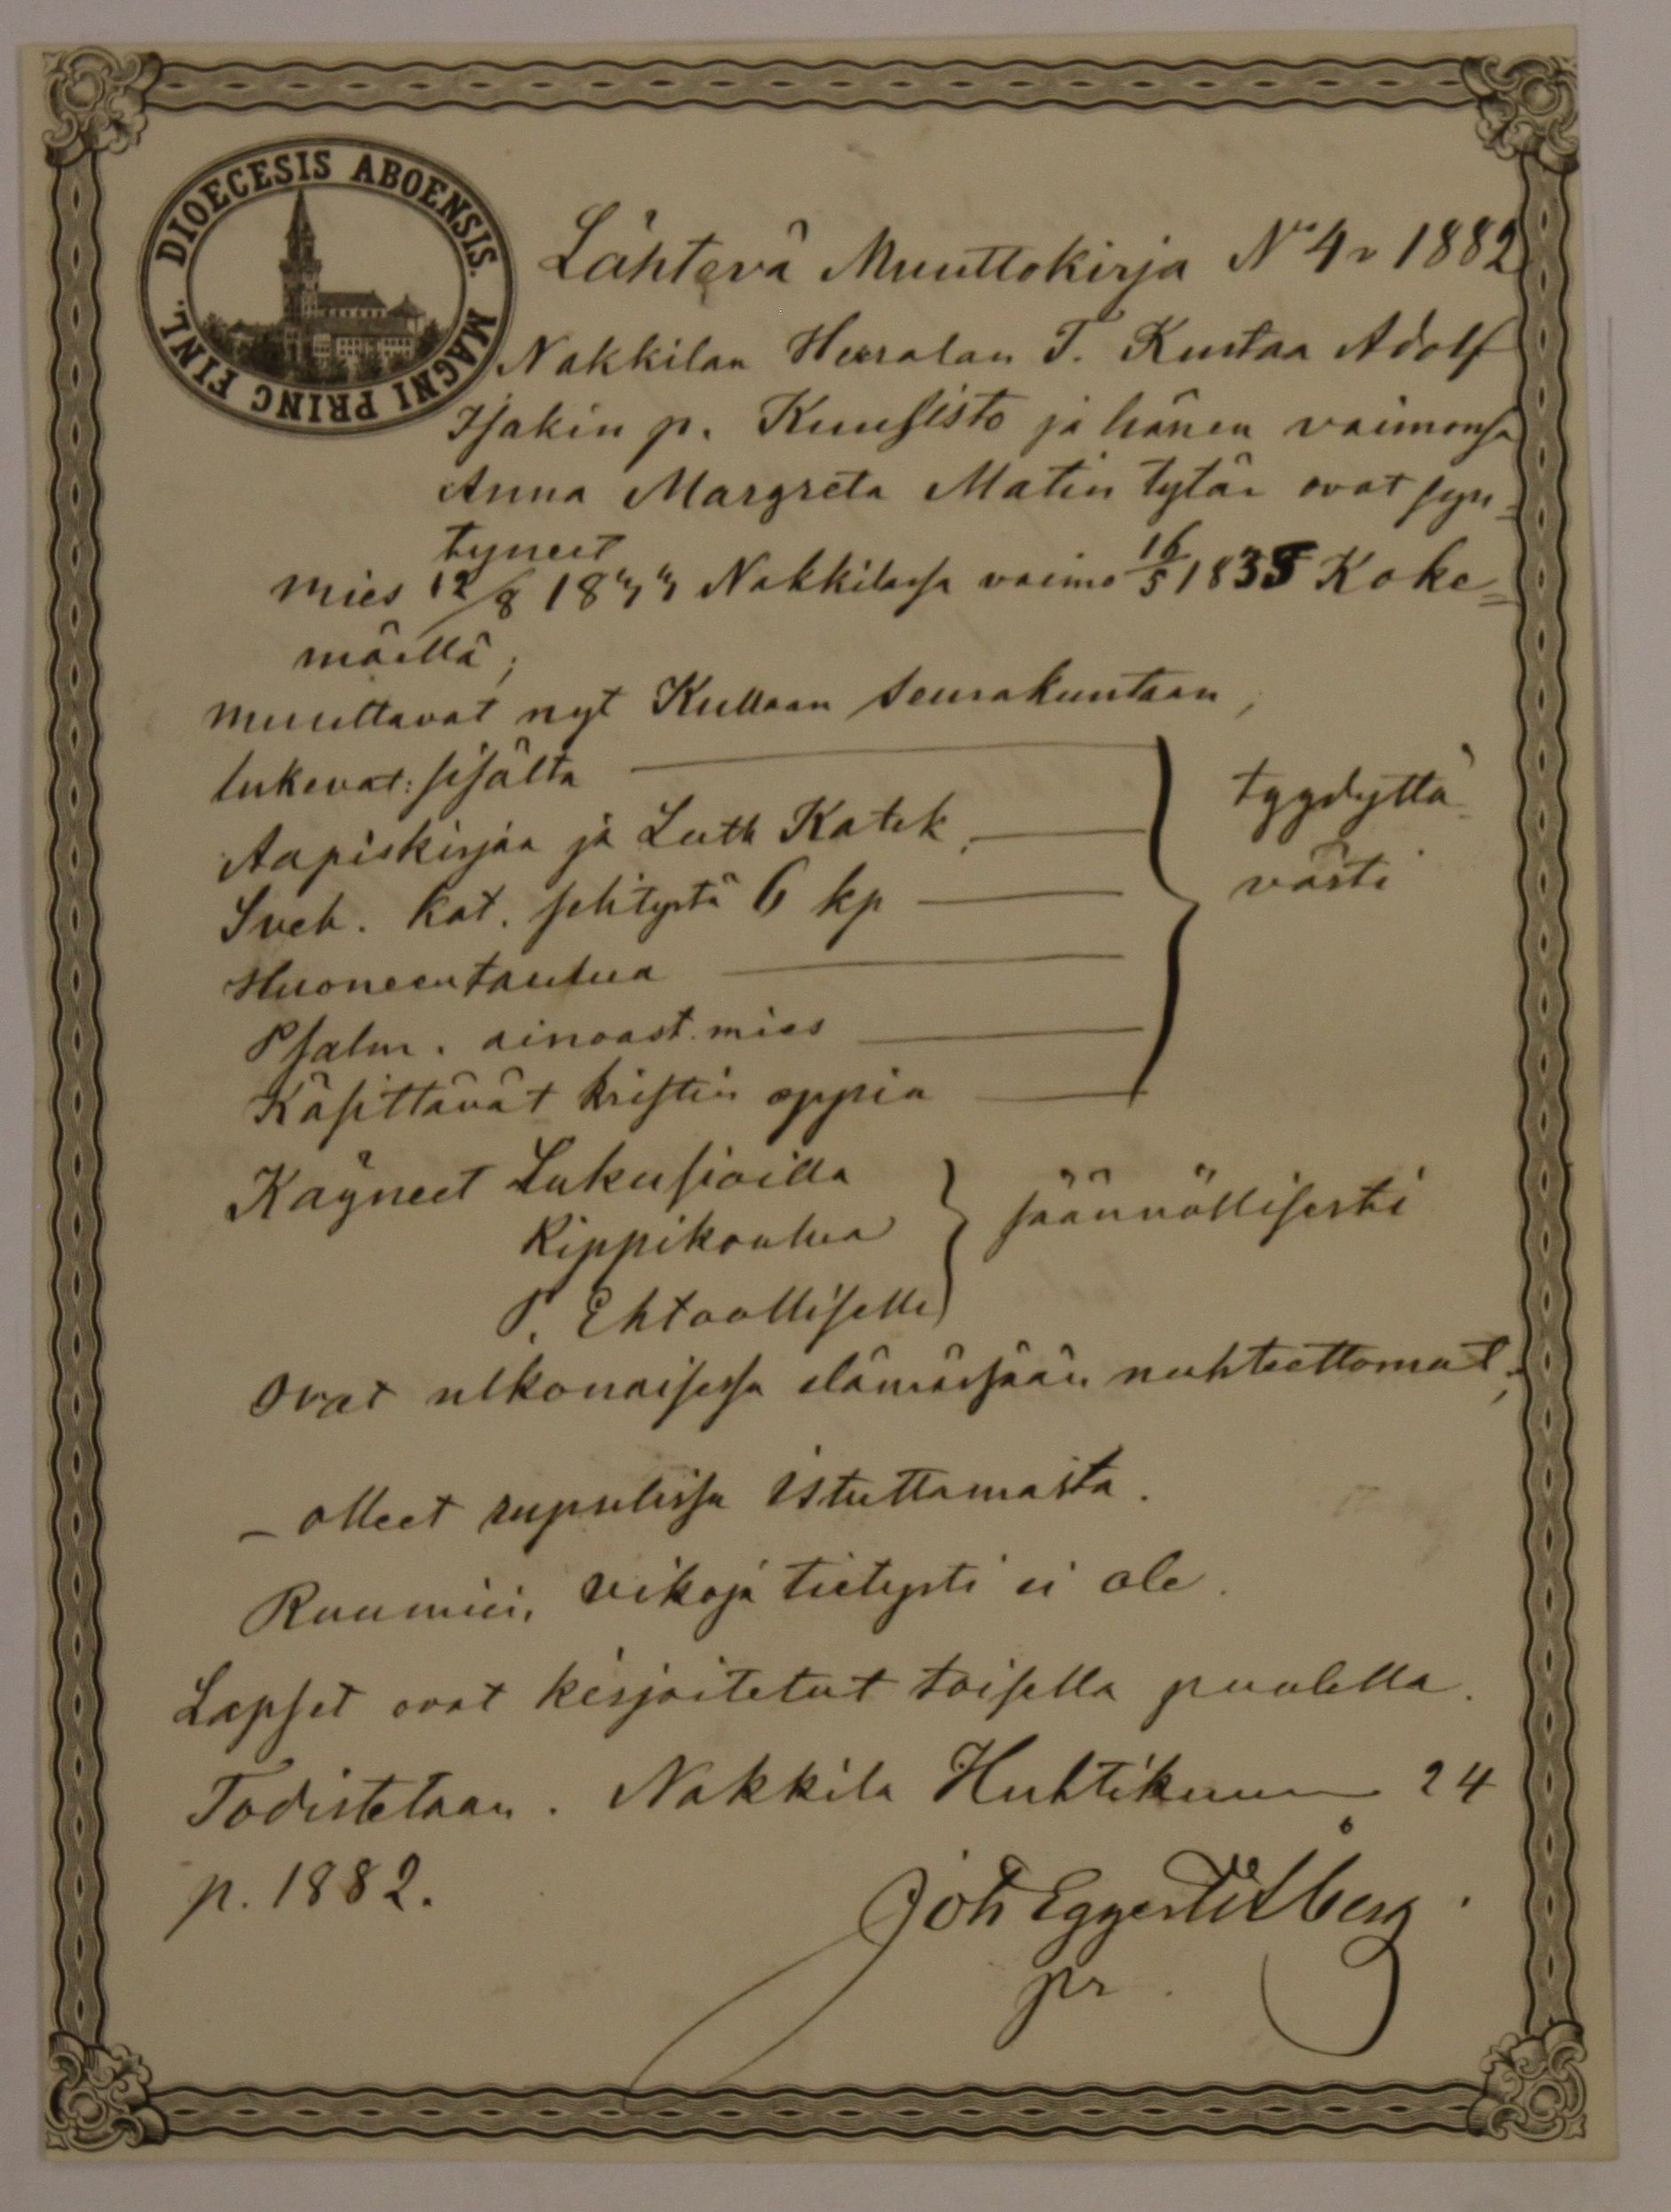 DIOECESIS ABOENSIS. MAGNI PRINC FINL.
Lähtevä Muuttokirja No 4 v 1882
Nakkilan Herralan T. Kustaa Adolf
Isakin p. Kuusisto ja hänen vaimonsa
Anna Margreta Matin tytär ovat syn=
tyneet
mies 12/8 18 Nakkilassa vaimo 16/5 1835 Koke=
mäellä;
muuttavat nyt Kullaan seurakuntaan,
lukevat: sisältä
Aapiskirjaa ja Luth Katek.
Sveb. Kat. selitystä 6 kp
Huoneentaulua
Psalm. ainoast. mies
Käsittävät kristin oppia
tyydyttä-
västi
Käyneet Lukusioilla
Rippikoulua
P. Ehtoollisella
säännöllisesti
Ovat ulkonaisessa elämässään nuhteettomat;
- olleet rupulissa istuttamasta.
Ruumiin vikoja tietysti ei ole.
Lapset ovat kirjoitetut toisella puolella.
Todistetaan. Nakkila Huhtikuun 24
p. 1882.
Joh Eggert Lilberg.
pr.